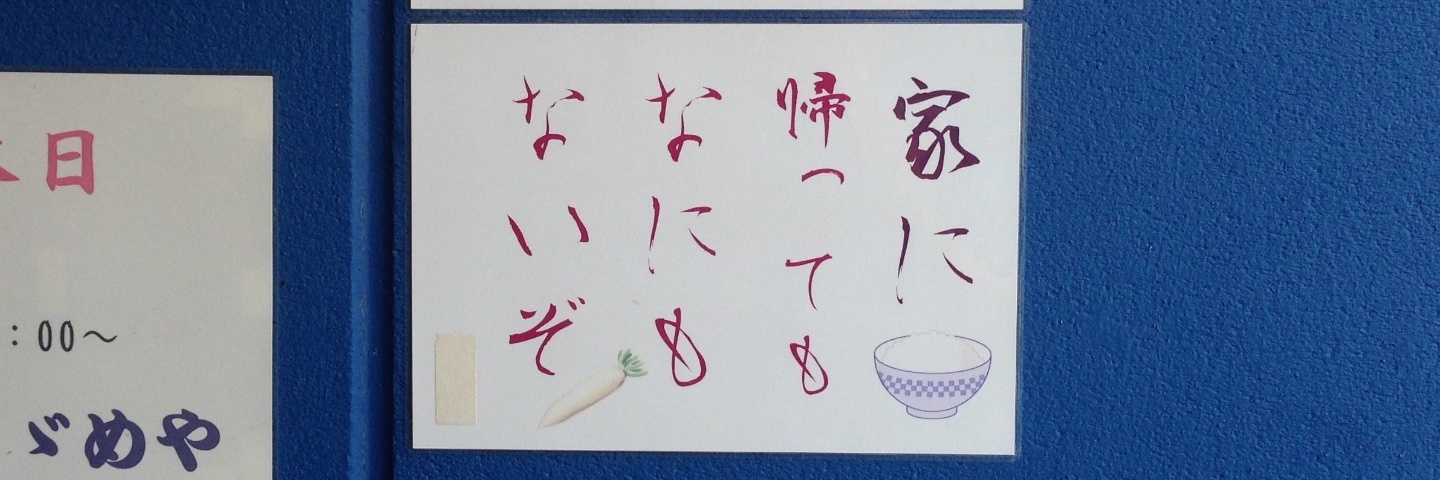 家に
帰っても
なにも
ないぞ
日
:00～
ゞめや